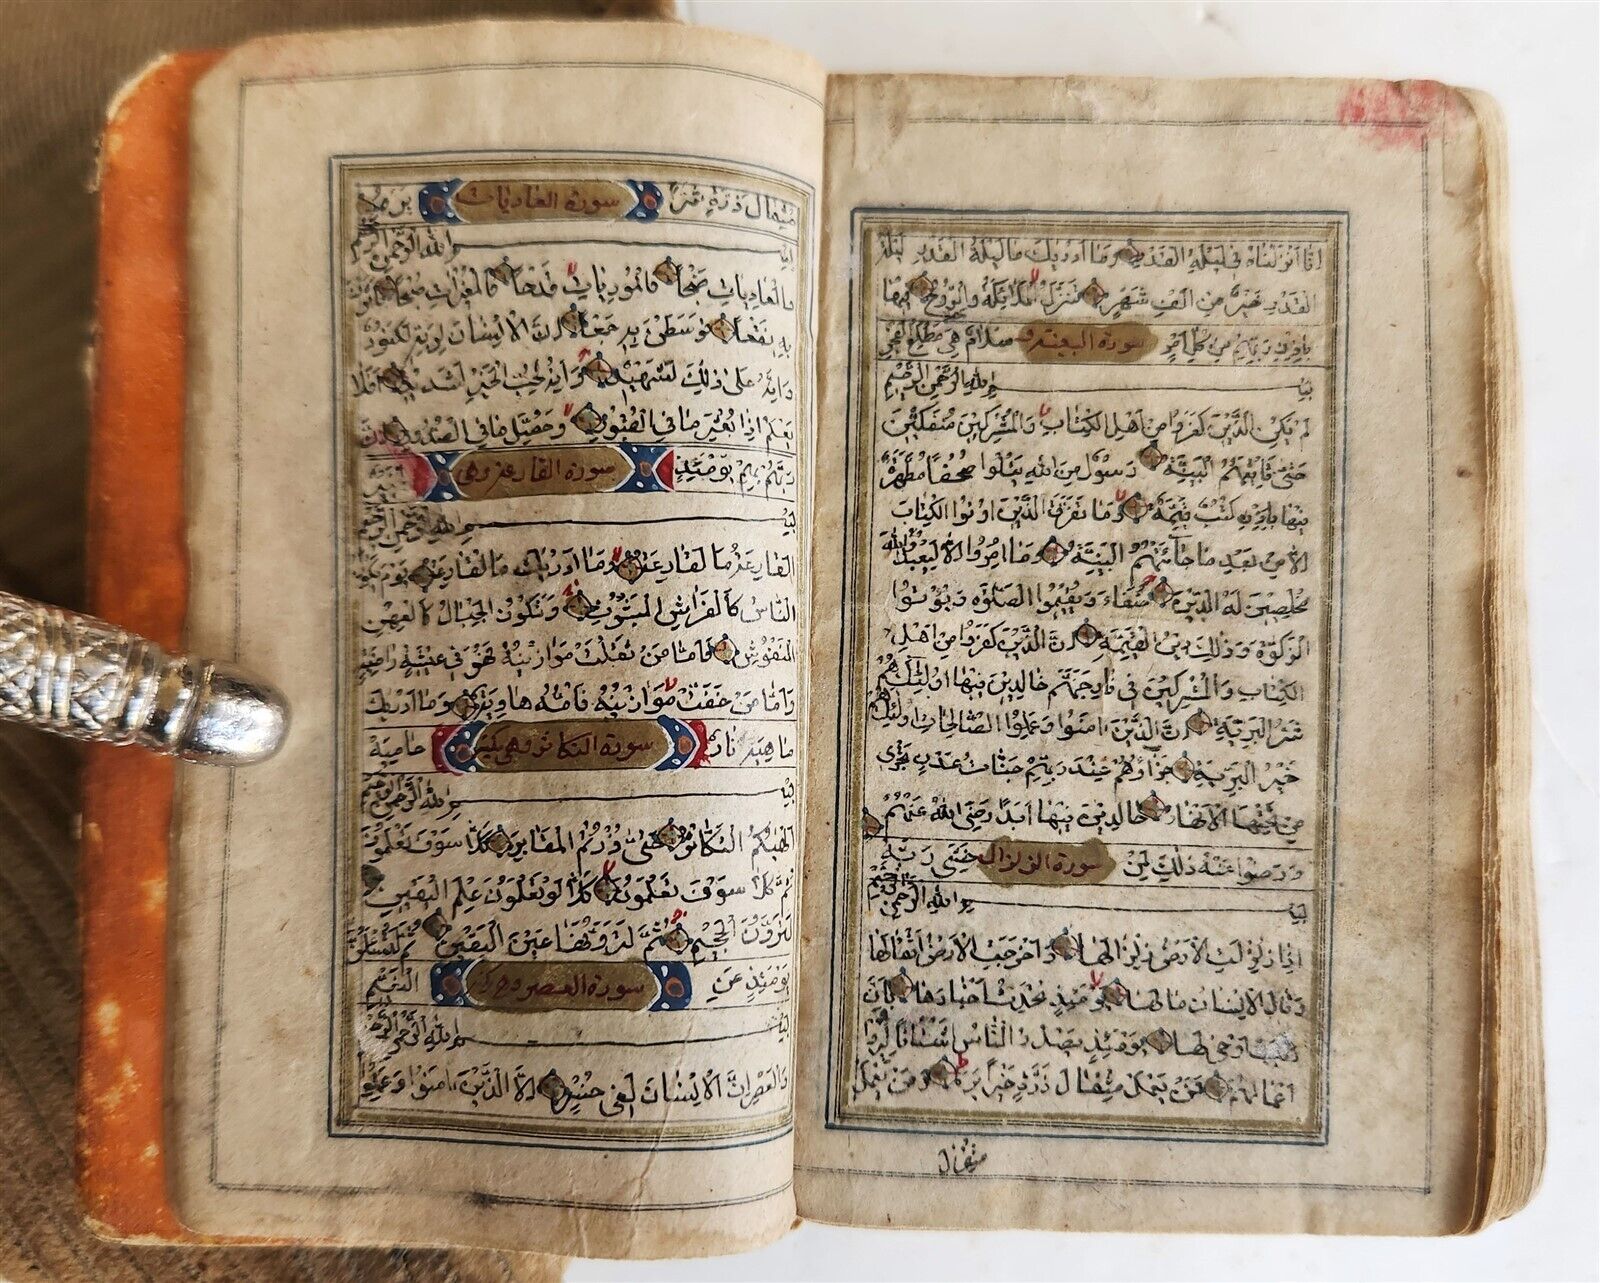 انا انزلناه في ليلة القدر وما ادريك ما ليلة القدر ليلة
القدر خير من الف شهر تنزل الملائكة والروح فيها
باذن ربهم من كل امر سورة البينة سلام هي مطلع الفجر
بسم الله الرحمن الرحيم
لم يكن الذين كفروا من اهل الكتاب والمشركين منفكين
حتى تاتيهم البينة رسول من الله يتلوا صحفا مطهرة
فيها كتب قيمة وما تفرق الذين اوتوا الكتاب
الا من بعد ما جائتهم البينة وما امروا الا ليعبدوا الله
مخلصين له الدين حنفاء ويقيموا الصلوة ويؤتوا
الزكوة وذلك دين القيمة ان الذين كفروا من اهل
الكتاب والمشركين في نار جهنم خالدين فيها اولئك هم
شر البرية ان الذين امنوا وعملوا الصالحات اولئك هم
خير البرية جزاؤهم عند ربهم جنات عدن تجري
من تحتها الانهار خالدين فيها ابدا رضي الله عنهم
ورضوا عنه ذلك لمن سورة الزلزال خشي ربه
بسم الله الرحمن الرحيم
اذا زلزلت الارض زلزالها واخرجت الارض اثقالها
وقال الانسان مالها يومئذ تحدث اخبارها بان
ربك اوحى لها يومئذ يصدر الناس اشتاتا ليروا
اعمالهم فمن يعمل مثقال ذرة خيرا يره ومن يعمل
مثقال
مثقال ذرة شرا سورة العاديات يره
بسم الله الرحمن الرحيم
والعاديات ضبحا فالموريات قدحا فالمغيرات صبحا فاثرن
به نقعا فوسطن به جمعا ان الانسان لربه لكنود
وانه على ذلك لشهيد وانه لحب الخير لشديد افلا
يعلم اذا بعثر ما في القبور وحصل ما في الصدور ان
ربهم بهم يومئذ سورة القارعة وهي لخبير
بسم الله الرحمن الرحيم
القارعة ما القارعة وما ادريك ما القارعة يوم يكون
الناس كالفراش المبثوث وتكون الجبال كالعهن
المنفوش فاما من ثقلت موازينه فهو في عيشة راضية
واما من خفت موازينه فامه هاوية وما ادريك
ما هيه نار سورة التكاثر وهي حامية
بسم الله الرحمن الرحيم
الهيكم التكاثر حتى زرتم المقابر كلا سوف تعلمون
ثم كلا سوف تعلمون كلا لو تعلمون علم اليقين
لترون الجحيم ثم لترونها عين اليقين ثم لتسئلن
يومئذ عن سورة العصر النعيم
بسم الله الرحمن الرحيم
والعصر ان الانسان لفي خسر الا الذين امنوا وعملوا